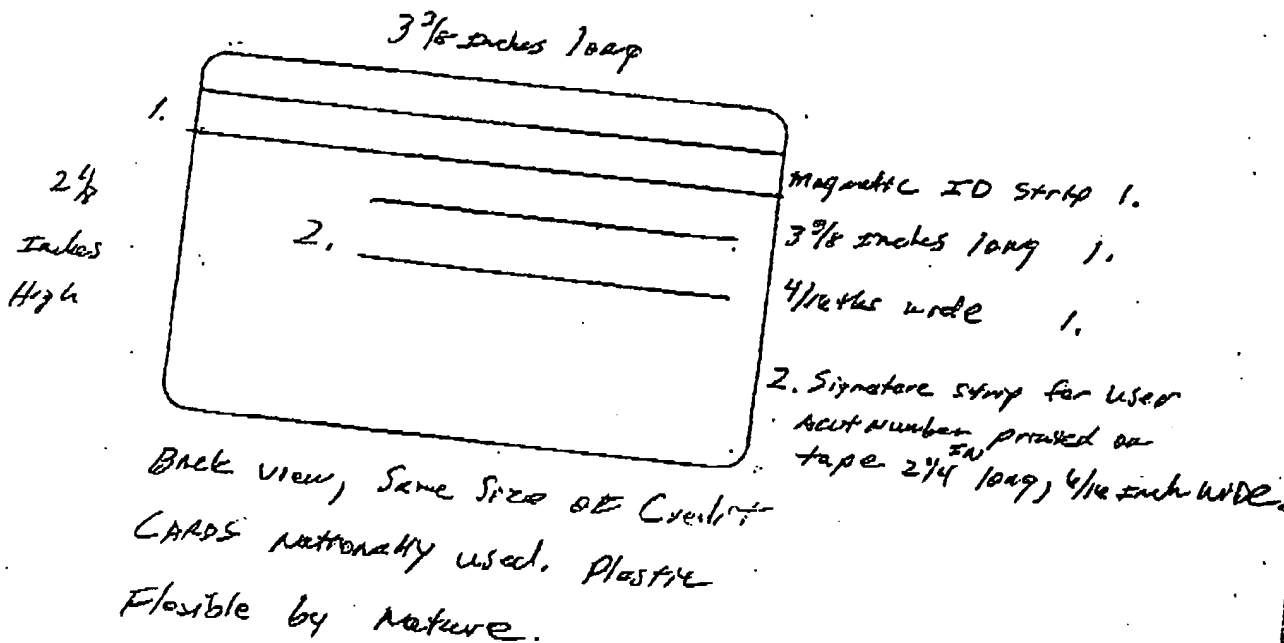 3 3/8 Inches long
1.
2 1/8
Inches
High
2.
Magnetic ID Strip 1.
3 3/8 Inches long 1.
4/16ths wide 1.
2. Signature strip for user
Acut Number printed on
tape 2 1/4 IN long, 6/16 Inch WIDE.
Back view, Same Size OF Credit
CARDS Nationally used. Plastic
Flexible by Nature.